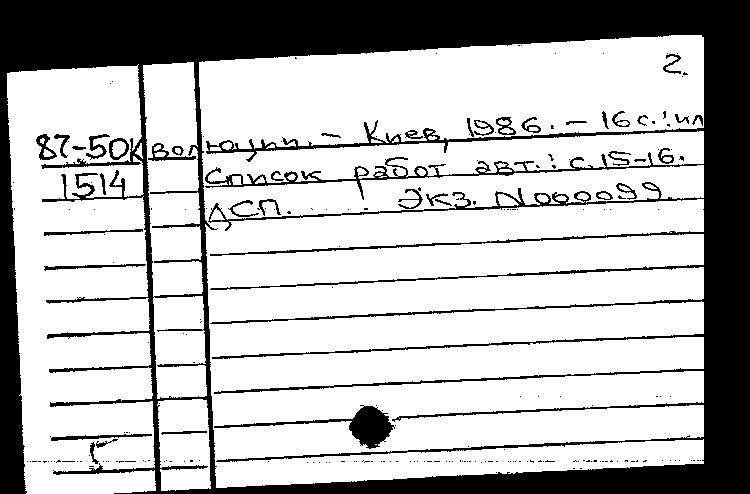 2.
87-50К волюции. – Киев, 1986. – 16 с.: ил
1514 Список работ авт.: с. 15-16.
ДСП. Экз. N000099.
5